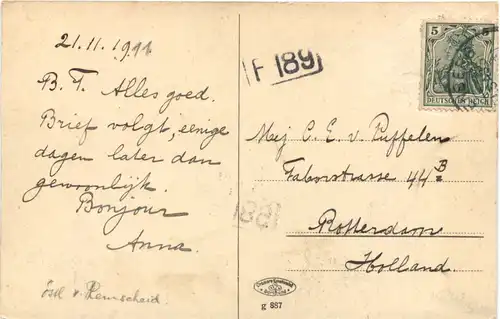 21.11.1911
B.T. Alles goed.
Brief volgt, eenige
dagen later dan
gewoonlijk.
Bonjour
Anna.
östl v. Remscheid
F 189
5 5
DEUTSCHES REICH
Mej C. E. v. Puffelen
Faborstrasse 44 B
Rotterdam
Holland.
g 887